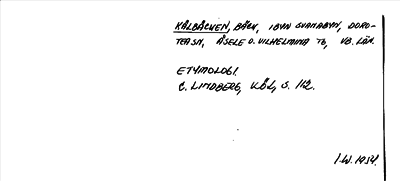 KÅLBÄCKEN, BÄCK, I BYN SVANABYN, DORO-
TEA SN, ÅSELE O. VILHELMINA TG, VB. LÄN.
ETYMOLOGI.
C. LINDBERG, KÖL, S. 112.
I.W. 1934.